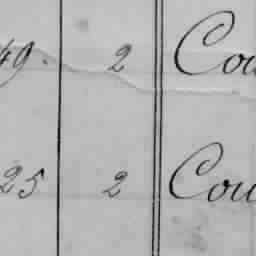 49. 2 Cou
25 2 Cou